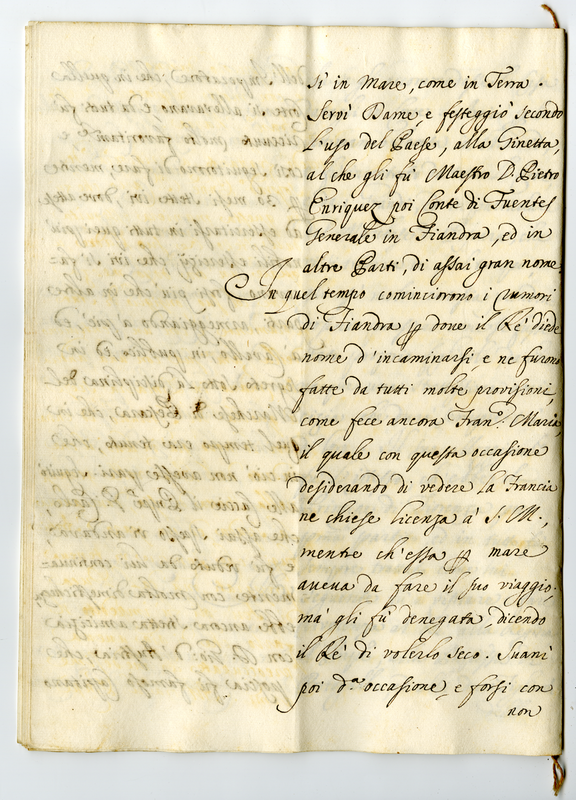 si in Mare, come in Terra.
Servì Dame, e festeggiò secondo
l'uso del Paese, alla Ginetta,
al che gli fù Maestro D. Pietro
Enriquez poi Conte di Fuentes
Generale in Fiandra, ed in
altre Parti, di assai gran nome.
In quel tempo cominciorono i rumori
di Fiandra ꝑ dove il Rè diede
nome d'incaminarsi, e ne furono
fatte da tutti molte provisioni,
come fece ancora Fran.º Maria,
il quale con questa occasione
desiderando di vedere la Francia
ne chiese licenza à S. M.,
mentre ch'essa ꝑ mare
aveva da fare il suo viaggio,
mà gli fù denegata, dicendo
il Rè di volerlo seco. Svanì
poi d.ª occasione, e forsi con
non